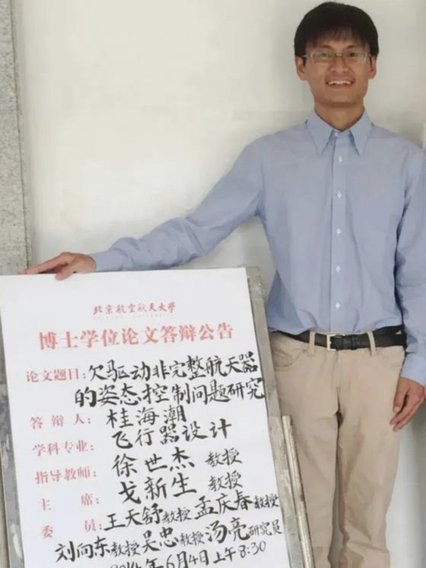 北京航空航天大学
博士学位论文答辩公告
论文题目：欠驱动非完整航天器
的姿态控制问题研究
答辩人：桂海潮
学科专业：飞行器设计
指导教师：徐世杰 教授
主席：戈新生 教授
委员：王天舒教授 孟庆春教授
刘向东教授 吴忠教授 汤亮研究员
2014年6月4日上午8:30